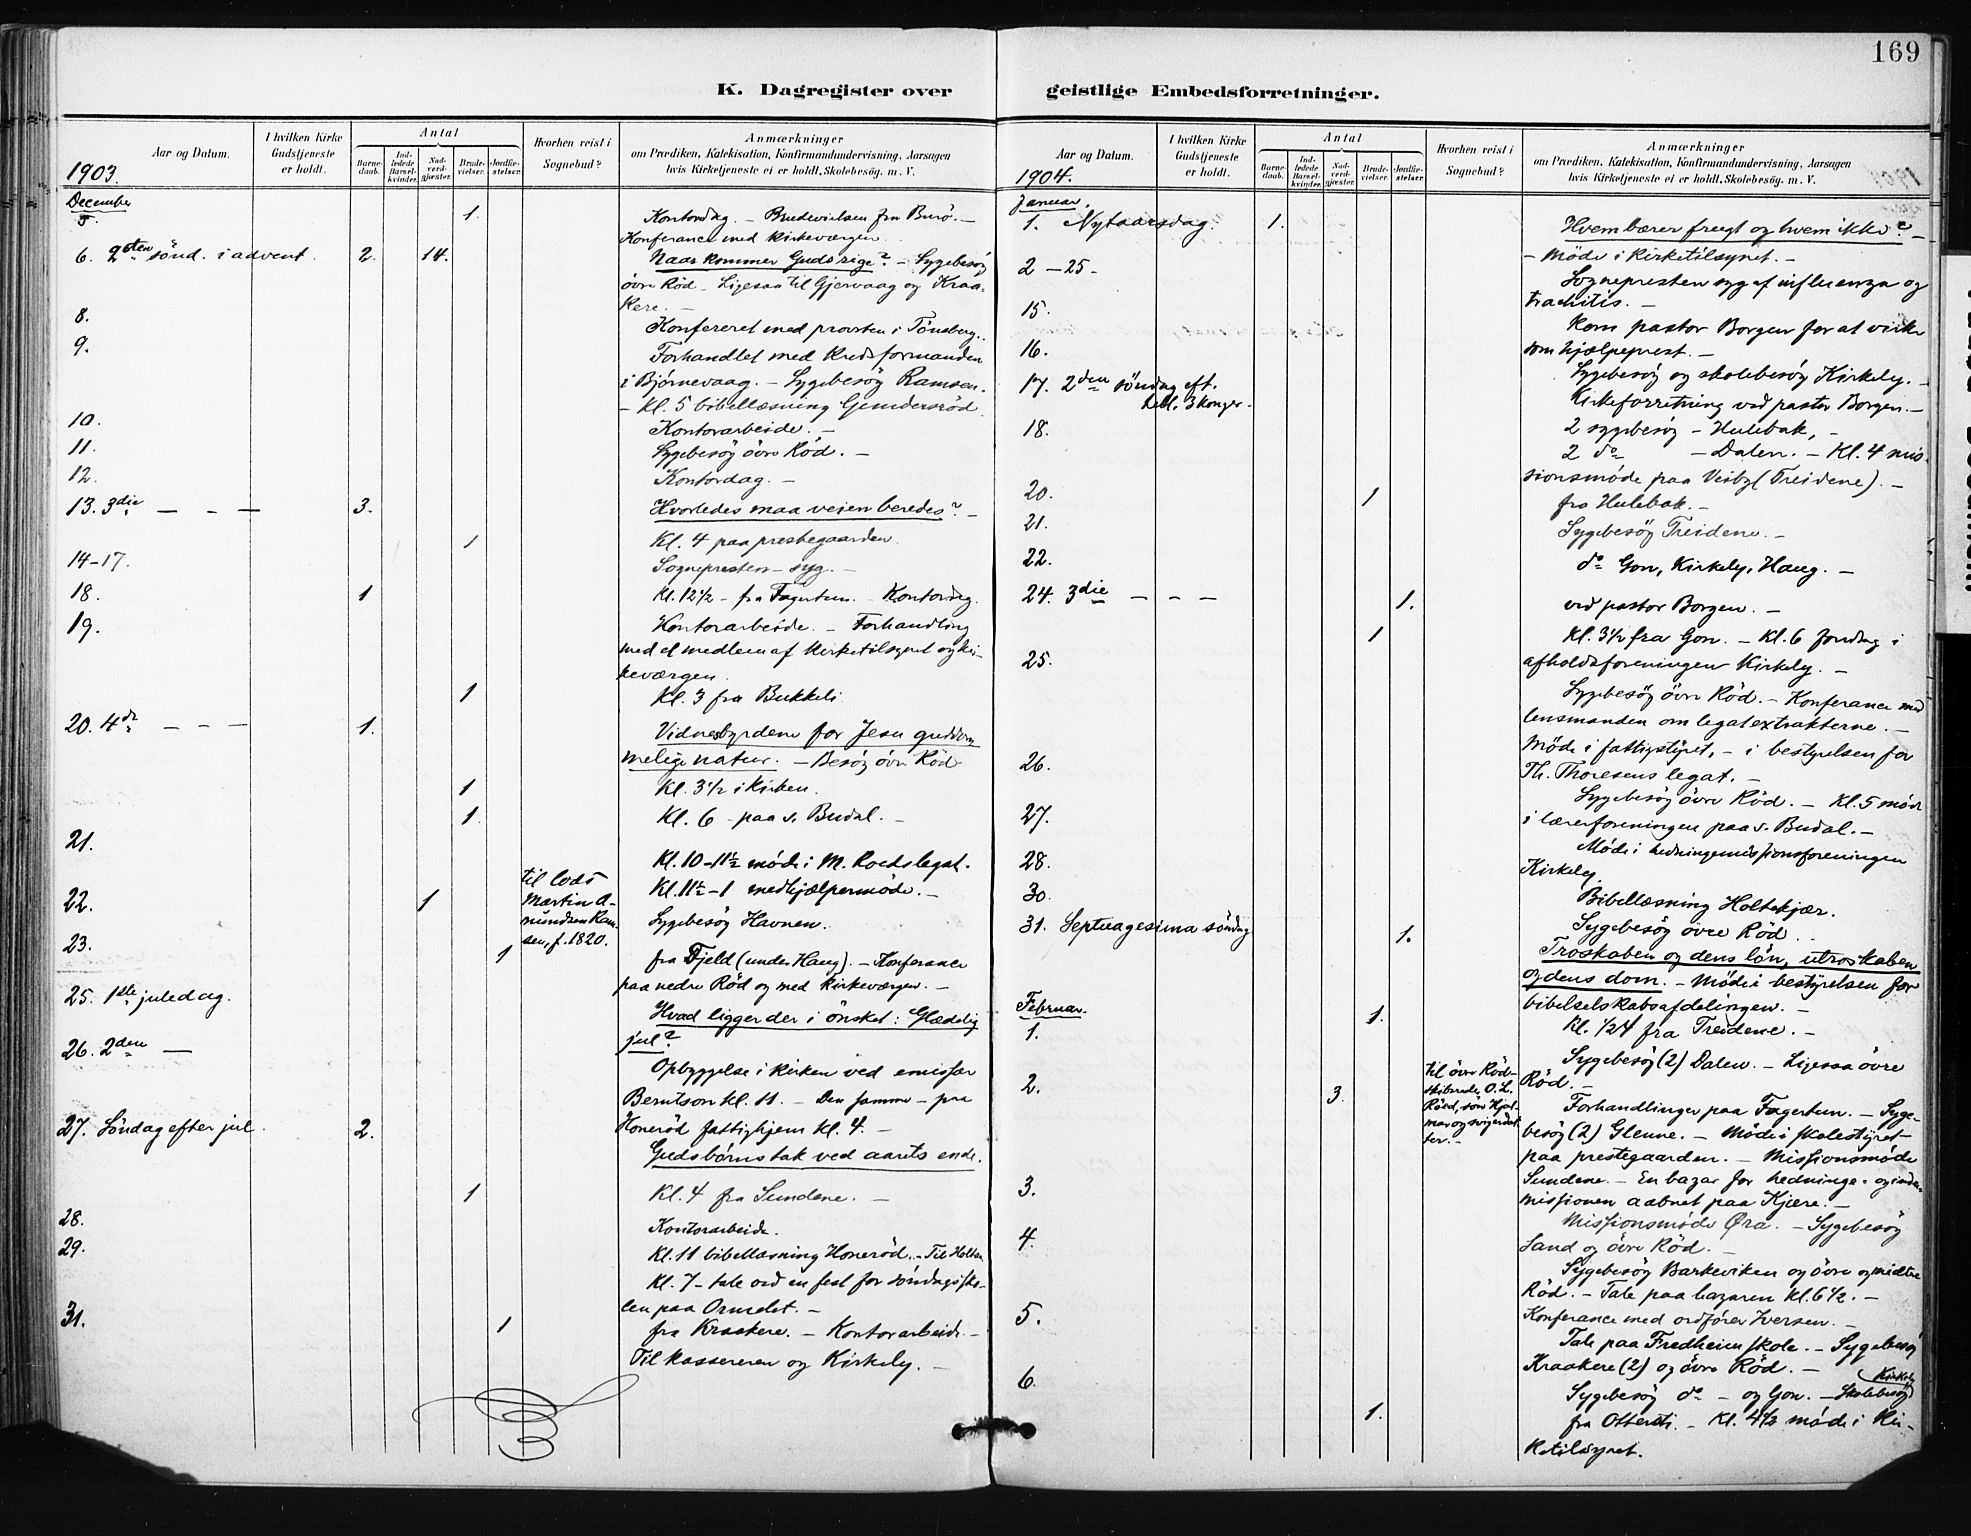 169
K. Dagregister over
geistlige Embedsforretninger.
Aar og Datum.
I hvilken Kirke Gudstjeneste er holdt.
Antal
Barnedaab.
Indledede Barselkvinder.
Nadverdgjæster.
Brudevielser.
Jordfæstelser.
Hvorhen reist i Sognebud?
Anmærkninger
om Prædiken, Katekisation, Konfirmandundervisning, Aarsagen
hvis Kirketjeneste ei er holdt, Skolebesøg. m. V.
1903.
December
5. 1. Kontordag. – Brudevielsen fra Burö. –
Konferance med kirkeværgen.
6. 2den sönd. i advent. 2. 14. Naar kommer Guds rige? – Sygebesög
övre Röd – Ligesaa til Gjervaag og Kraa-
kere. –
8. Konfereret med provsten i Tönsberg.
9. Forhandlet med kredsformanden
i Bjørnevaag. – Sygebesög Ramsen.
– Kl. 5 bibellæsning Gunderöd.
10. Kontorarbeide. –
11. Sygebesög övre Röd. –
12. Kontordag. –
13. 3die — – — 3. Hvorledes maa veien beredes? –
1 Kl. 4 paa prestegaarden.
14–17. Sognepresten syg. –
18. 1 Kl. 12½ – fra Fagertun. – Kontordag.
19. Kontorarbeide. – Forhandling
med et medlem af kirketilsynet og kir-
keværgen.
1 Kl. 3 fra Bukkeli.
20. 4de – – – 1. Vidnesbyrdene for Jesu guddom-
melige natur. – Besög övre Röd
1 Kl. 3½ i kirken.
1. Kl. 6 – paa s. Budal. –
21. Kl. 10–11½ möde i M. Roeds legat.
Kl. 11½–1 medhjælpermöde. –
22. 1 til lods
Martin A-
mundsen Ram-
sen, f. 1820.
Sygebesög Havnen.
23. 1 fra Fjeld (under Haug). – Konferance
paa nedre Röd og med kirkeværgen. –
25. 1ste juledag. Hvad ligger der i önsket: Glædelig
jul?
26. 2den — Opbyggelse i kirken ved emissær
Berntson kl. 11. – Den samme – paa
Honeröd fattighjem kl. 4. –
27. Söndag efter jul. 2. Guds börns tak ved aarets ende.
1 Kl. 4 fra Sundene. –
28. Kontorarbeide.
29. Kl. 11 bibellæsning Honeröd. – Til Holtan
Kl. 7 – tale ved en fest for söndagssko-
len paa Ormelet. –
31. 1 fra Kraakere. – Kontorarbeide. –
Til kassereren og Kirkely. –
Aar og Datum.
I hvilken Kirke Gudstjeneste er holdt.
Antal
Barnedaab.
Indledede Barselkvinder.
Nadverdgjæster.
Brudevielser.
Jordfæstelser.
Hvorhen reist i Sognebud?
Anmærkninger
om Prædiken, Katekisation, Konfirmandundervisning, Aarsagen
hvis Kirketjeneste ei er holdt, Skolebesøg. m. V.
1904.
Januar.
1. Nytaarsdag. 1. Hvem bærer frugt og hvem ikke? –
– Möde i kirketilsynet. –
2 – 25 – Sognepresten syg af influenza og
trachitis. –
15. Kom pastor Borgen for at virke
som hjælpeprest. –
16. Sygebesög og skolebesög Kirkely. –
17. 2den söndag eft.
hell. 3 konger – Kirkeforretning ved pastor Borgen. –
18. 2 sygebesög – Hulebak, –
2 do – Dalen. – Kl. 4 mis-
sionsmöde paa Veiby (Treidene). –
20. 1 fra Hulebak. –
21. Sygebesög Treidene. –
22. do Gon, Kirkely, Haug. –
24. 3die – – – 1. ved pastor Borgen. –
1 Kl. 3½ fra Gon. – Kl. 6 foredrag i
afholdsforeningen Kirkely. –
25. Sygebesög övre Röd. – Konferance med
lensmanden om legatextrakterne. –
Möde i fattigstyret, – i bestyrelsen for
Th. Thoresens legat. –
26. Sygebesög övre Röd. – Kl. 5 möde
i lærerforeningen paa s. Budal. –
27. Möde i hedningemissionsforeningen
Kirkely.
28. Bibellæsning Holtekjær.
30. Sygebesög övre Röd. –
31. Septuagesima söndag 1. Troskaben og dens lön, utroskaben
og dens dom. – Möde i bestyrelsen for
bibelselskabsafdelingen. –
1. Kl. ½4 fra Treidene. –
Februar.
1. Sygebesög (2) Dalen. – Ligesaa övre
Röd. –
2. 3. til övre Röd –
skibsrede O. L.
Röed, sön Hjal-
mar og svigerdat-
ter. –
Forhandlinger paa Fagertun. – Syge-
besög (2) Glenne. – Möde i skolestyret
paa prestegaarden. – Missionsmöde
Sundene. – En bazar for hedninge- og indre-
missionen aabnet paa Kjære. –
3. Missionsmöde Øra. – Sygebesög
Sand og övre Röd. –
4. Sygebesög Barkeviken og övre og midtre
Röd. – Tale paa bazaren kl. 6½. –
Konferance med ordförer Iversen. –
5. Tale paa Fredheim skole. – Sygebesög
Kraakere (2) og övre Röd. –
6. Sygebesög do – og Gon. – Skolebesög Kirkely
1. fra Ottersti – Kl. 4½ möde i kir-
ketilsynet.